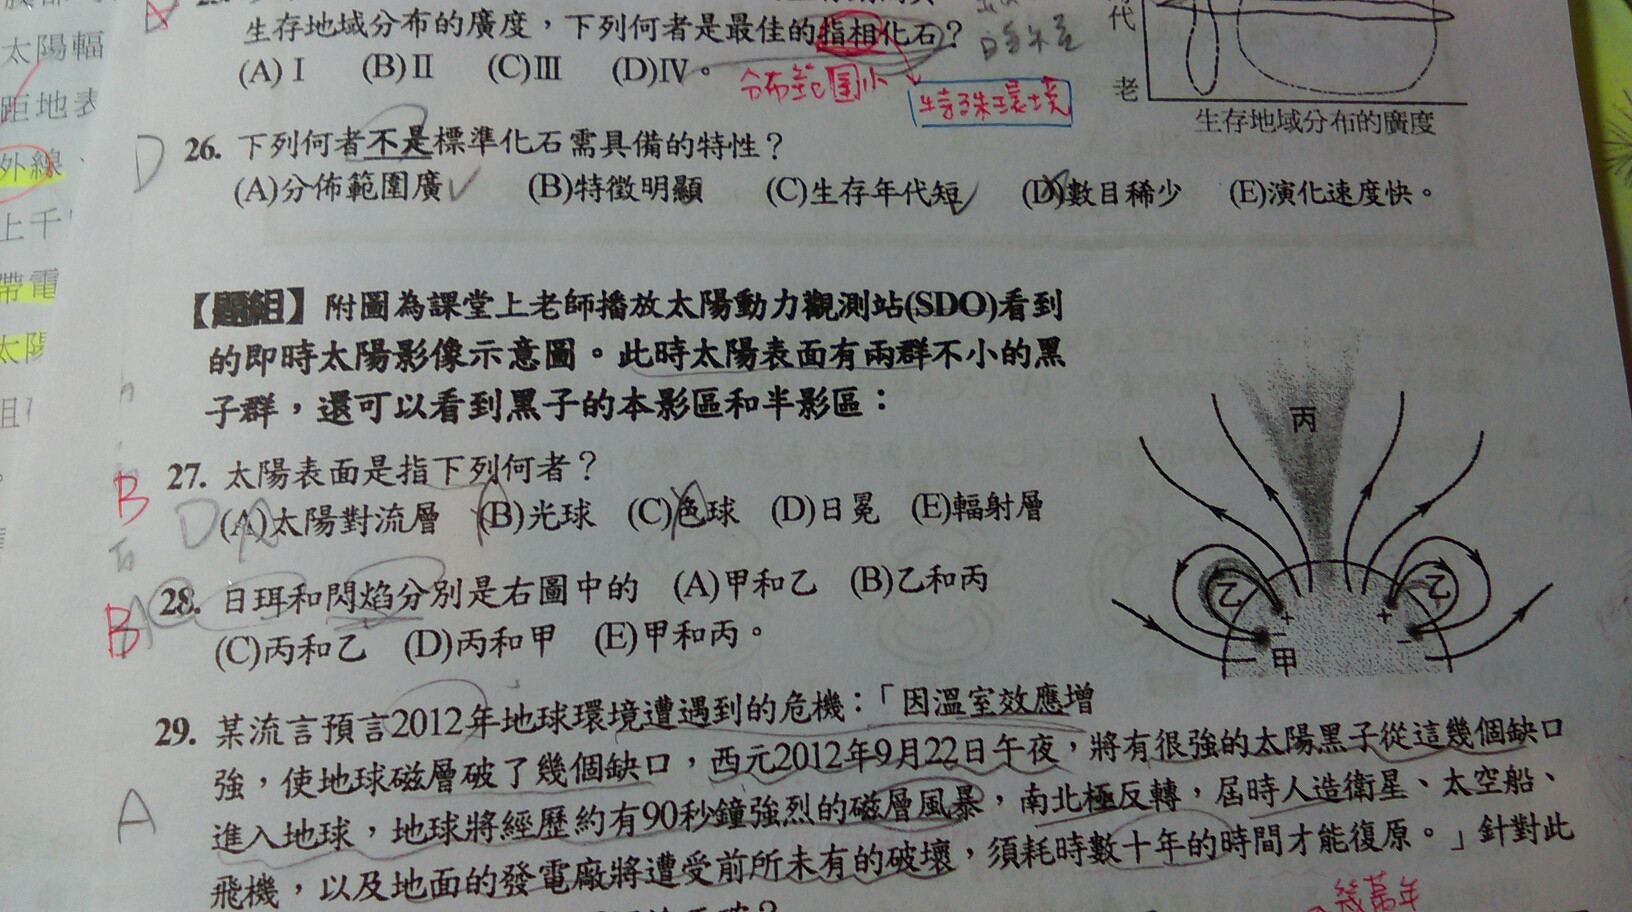 生存地域分布的廣度，下列何者是最佳的指相化石？
(A)Ⅰ (B)Ⅱ (C)Ⅲ (D)Ⅳ。
分布範圍小
特殊環境
代
老
生存地域分布的廣度
D
26. 下列何者不是標準化石需具備的特性？
(A)分佈範圍廣 (B)特徵明顯 (C)生存年代短 (D)數目稀少 (E)演化速度快。
【題組】附圖為課堂上老師播放太陽動力觀測站(SDO)看到
的即時太陽影像示意圖。此時太陽表面有兩群不小的黑
子群，還可以看到黑子的本影區和半影區：
B
27. 太陽表面是指下列何者？
D
(A)太陽對流層 (B)光球 (C)色球 (D)日冕 (E)輻射層
B
A
28. 日珥和閃焰分別是右圖中的 (A)甲和乙 (B)乙和丙
(C)丙和乙 (D)丙和甲 (E)甲和丙。
丙
乙
乙
+
+
−
−
甲
29. 某流言預言2012年地球環境遭遇到的危機：「因溫室效應增
強，使地球磁層破了幾個缺口，西元2012年9月22日午夜，將有很強的太陽黑子從這幾個缺口
A
進入地球，地球將經歷約有90秒鐘強烈的磁層風暴，南北極反轉，屆時人造衛星、太空船、
飛機，以及地面的發電廠將遭受前所未有的破壞，須耗時數十年的時間才能復原。」針對此
幾萬年
太陽輻
距地表
外線、
上千
帶電
太陽